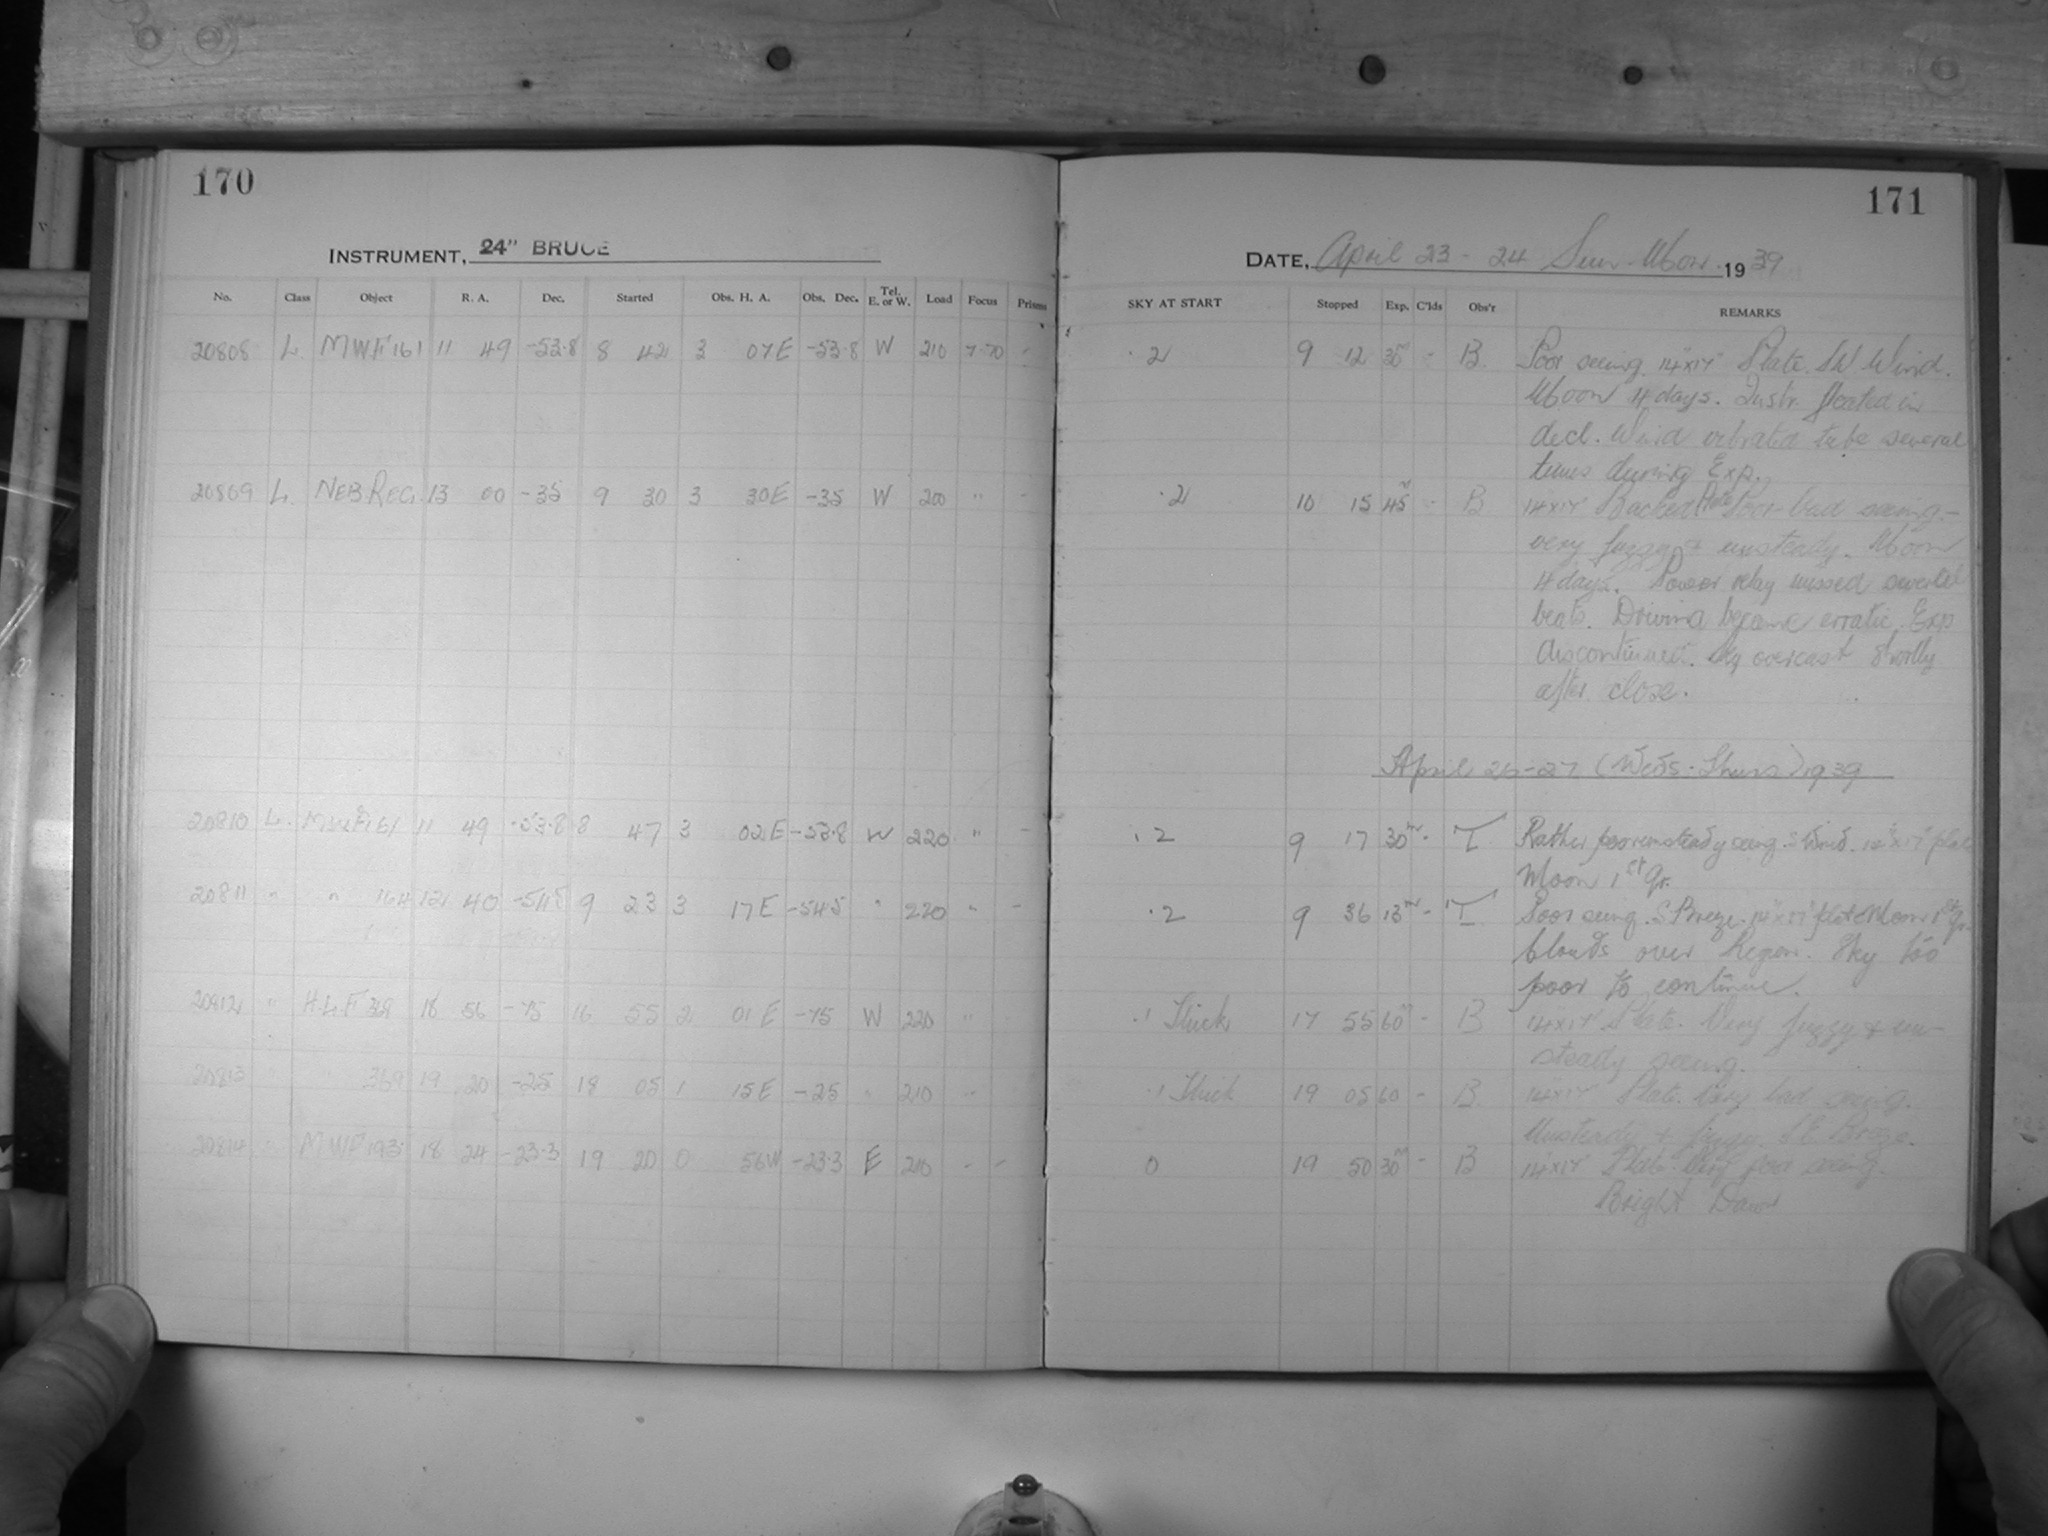 170
INSTRUMENT, 24" BRUCE
No. Class Object R. A. Dec. Started Obs. H. A. Obs. Dec. Tel. E. or W. Load Focus Prisms
20808 L. MWF 161 11 49 -53.8 8 42 3 07E -53.8 W 210 7.70 -
20809 L. NEB REG. 13 00 -35 9 30 3 30E -35 W 200 " -
20810 L. MWF 161 11 49 -53.8 8 47 3 02E -53.8 W 220 " -
20811 " " 164 12 40 -54.5 9 23 3 17E -54.5 " 220 " -
20812 " HLF 38 18 56 -75 16 55 2 01E -75 W 220 "
20813 " 369 19 20 -25 18 05 1 15E -25 " 210 "
20814 " MWF 193 18 24 -23.3 19 20 0 56W -23.3 E 210 - -
171
DATE, April 23 - 24 Sun-Mon. 1939
SKY AT START Stopped Exp. C'lds Obs'r REMARKS
.2 9 12 30m - B. Poor seeing. 14"x17" Plate. SW Wind.
Moon 4 days. Instr. floated in
decl. Wind vibrated tube several
times during Exp.
.2 10 15 45m - B 14"x17" Backed Plate Poor-bad seeing-
very fuzzy & unsteady. Moon
4 days. Power relay missed several
beats. Driving became erratic. Exp
discontinued. Sky overcast shortly
after close.
April 26-27 (Weds-Thurs) 1939
.2 9 17 30m - T Rather poor unsteady seeing. S Wind. 14"x17" plate
Moon 1st Qr.
.2 9 36 13m - T Poor seeing. S Breeze. 14"x17" plate Moon 1st Qr.
Clouds over Region. Sky too
poor to continue.
.1 Thick 17 55 60m - B 14"x17" Plate. Very fuzzy & un-
steady seeing.
.1 Thick 19 05 60 - B 14"x17" Plate. Very bad seeing.
Unsteady & fuzzy. SE Breeze.
0 19 50 30m - B 14"x17" Plate. Very poor seeing.
Bright Dawn